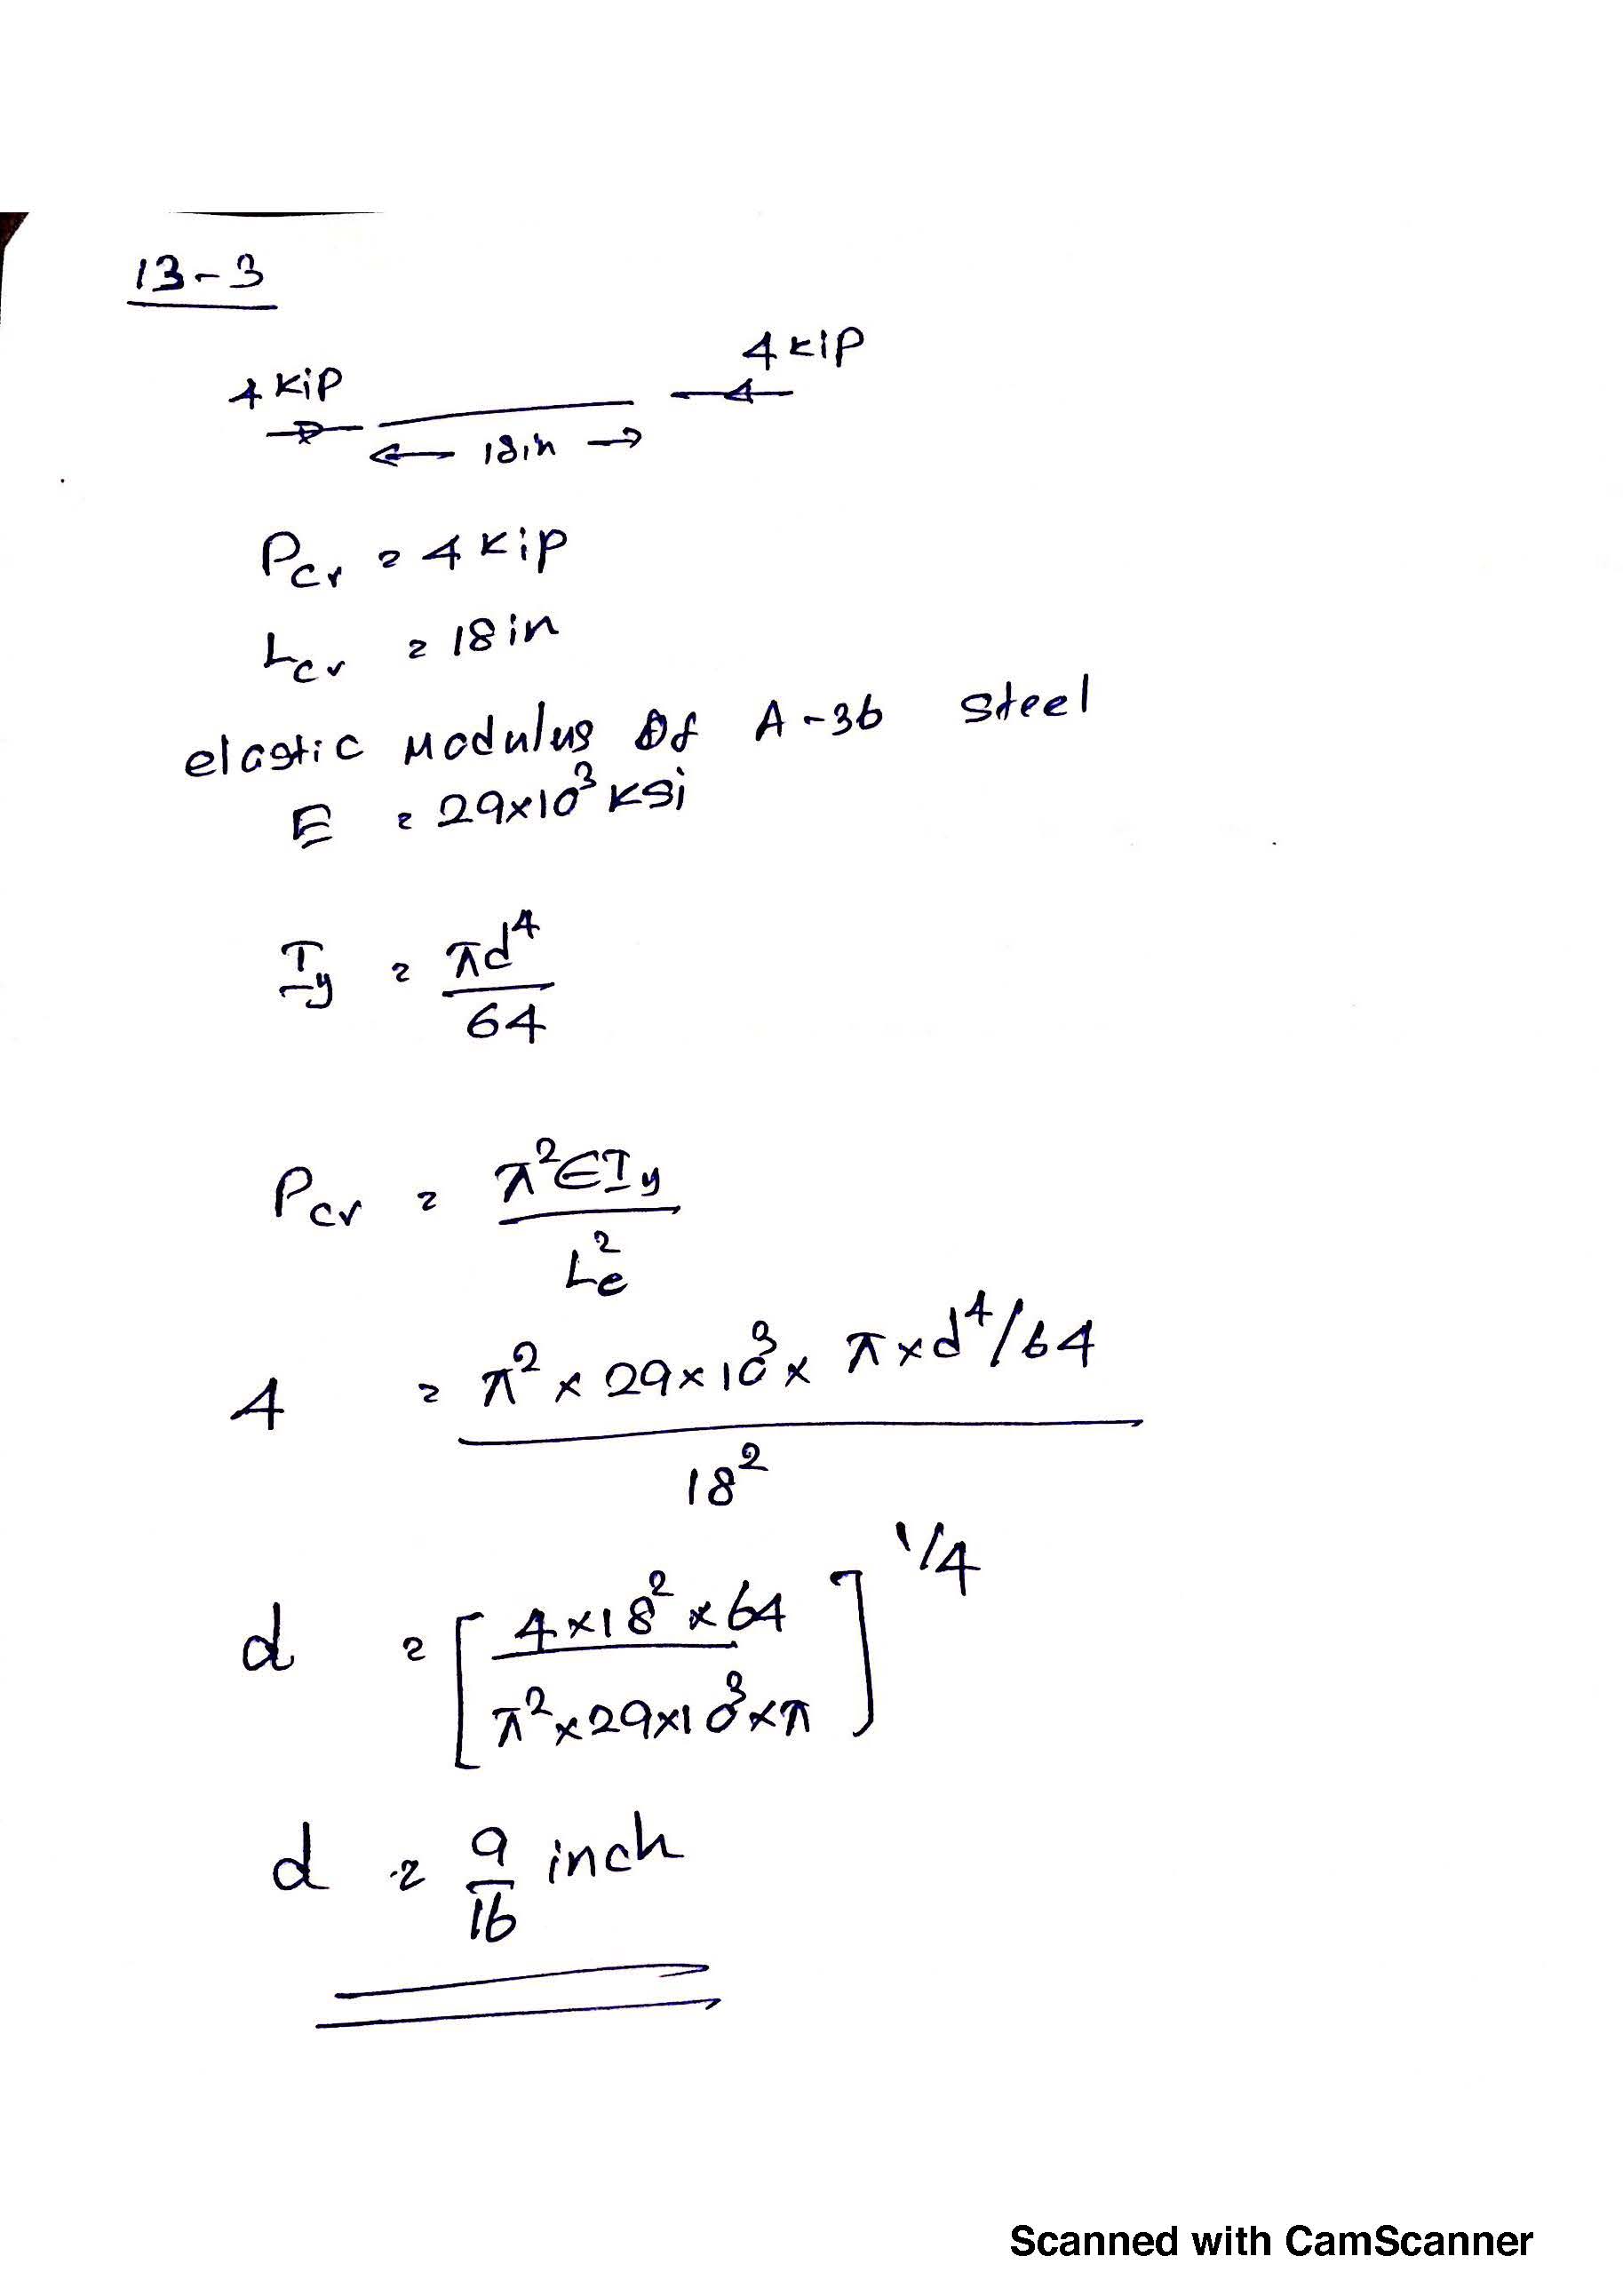 13-3
4 kip
4 kip
18in
Pcr = 4 kip
Lcr = 18 in
elastic Modulus Of A-36 Steel
E = 29×10³ ksi
Iy = πd⁴/64
Pcr = π²EIy/Le²
4 = π² × 29×10³ × π×d⁴/64 / 18²
d = [4×18²×64 / π²×29×10³×π]^1/4
d = 9/16 inch
Scanned with CamScanner